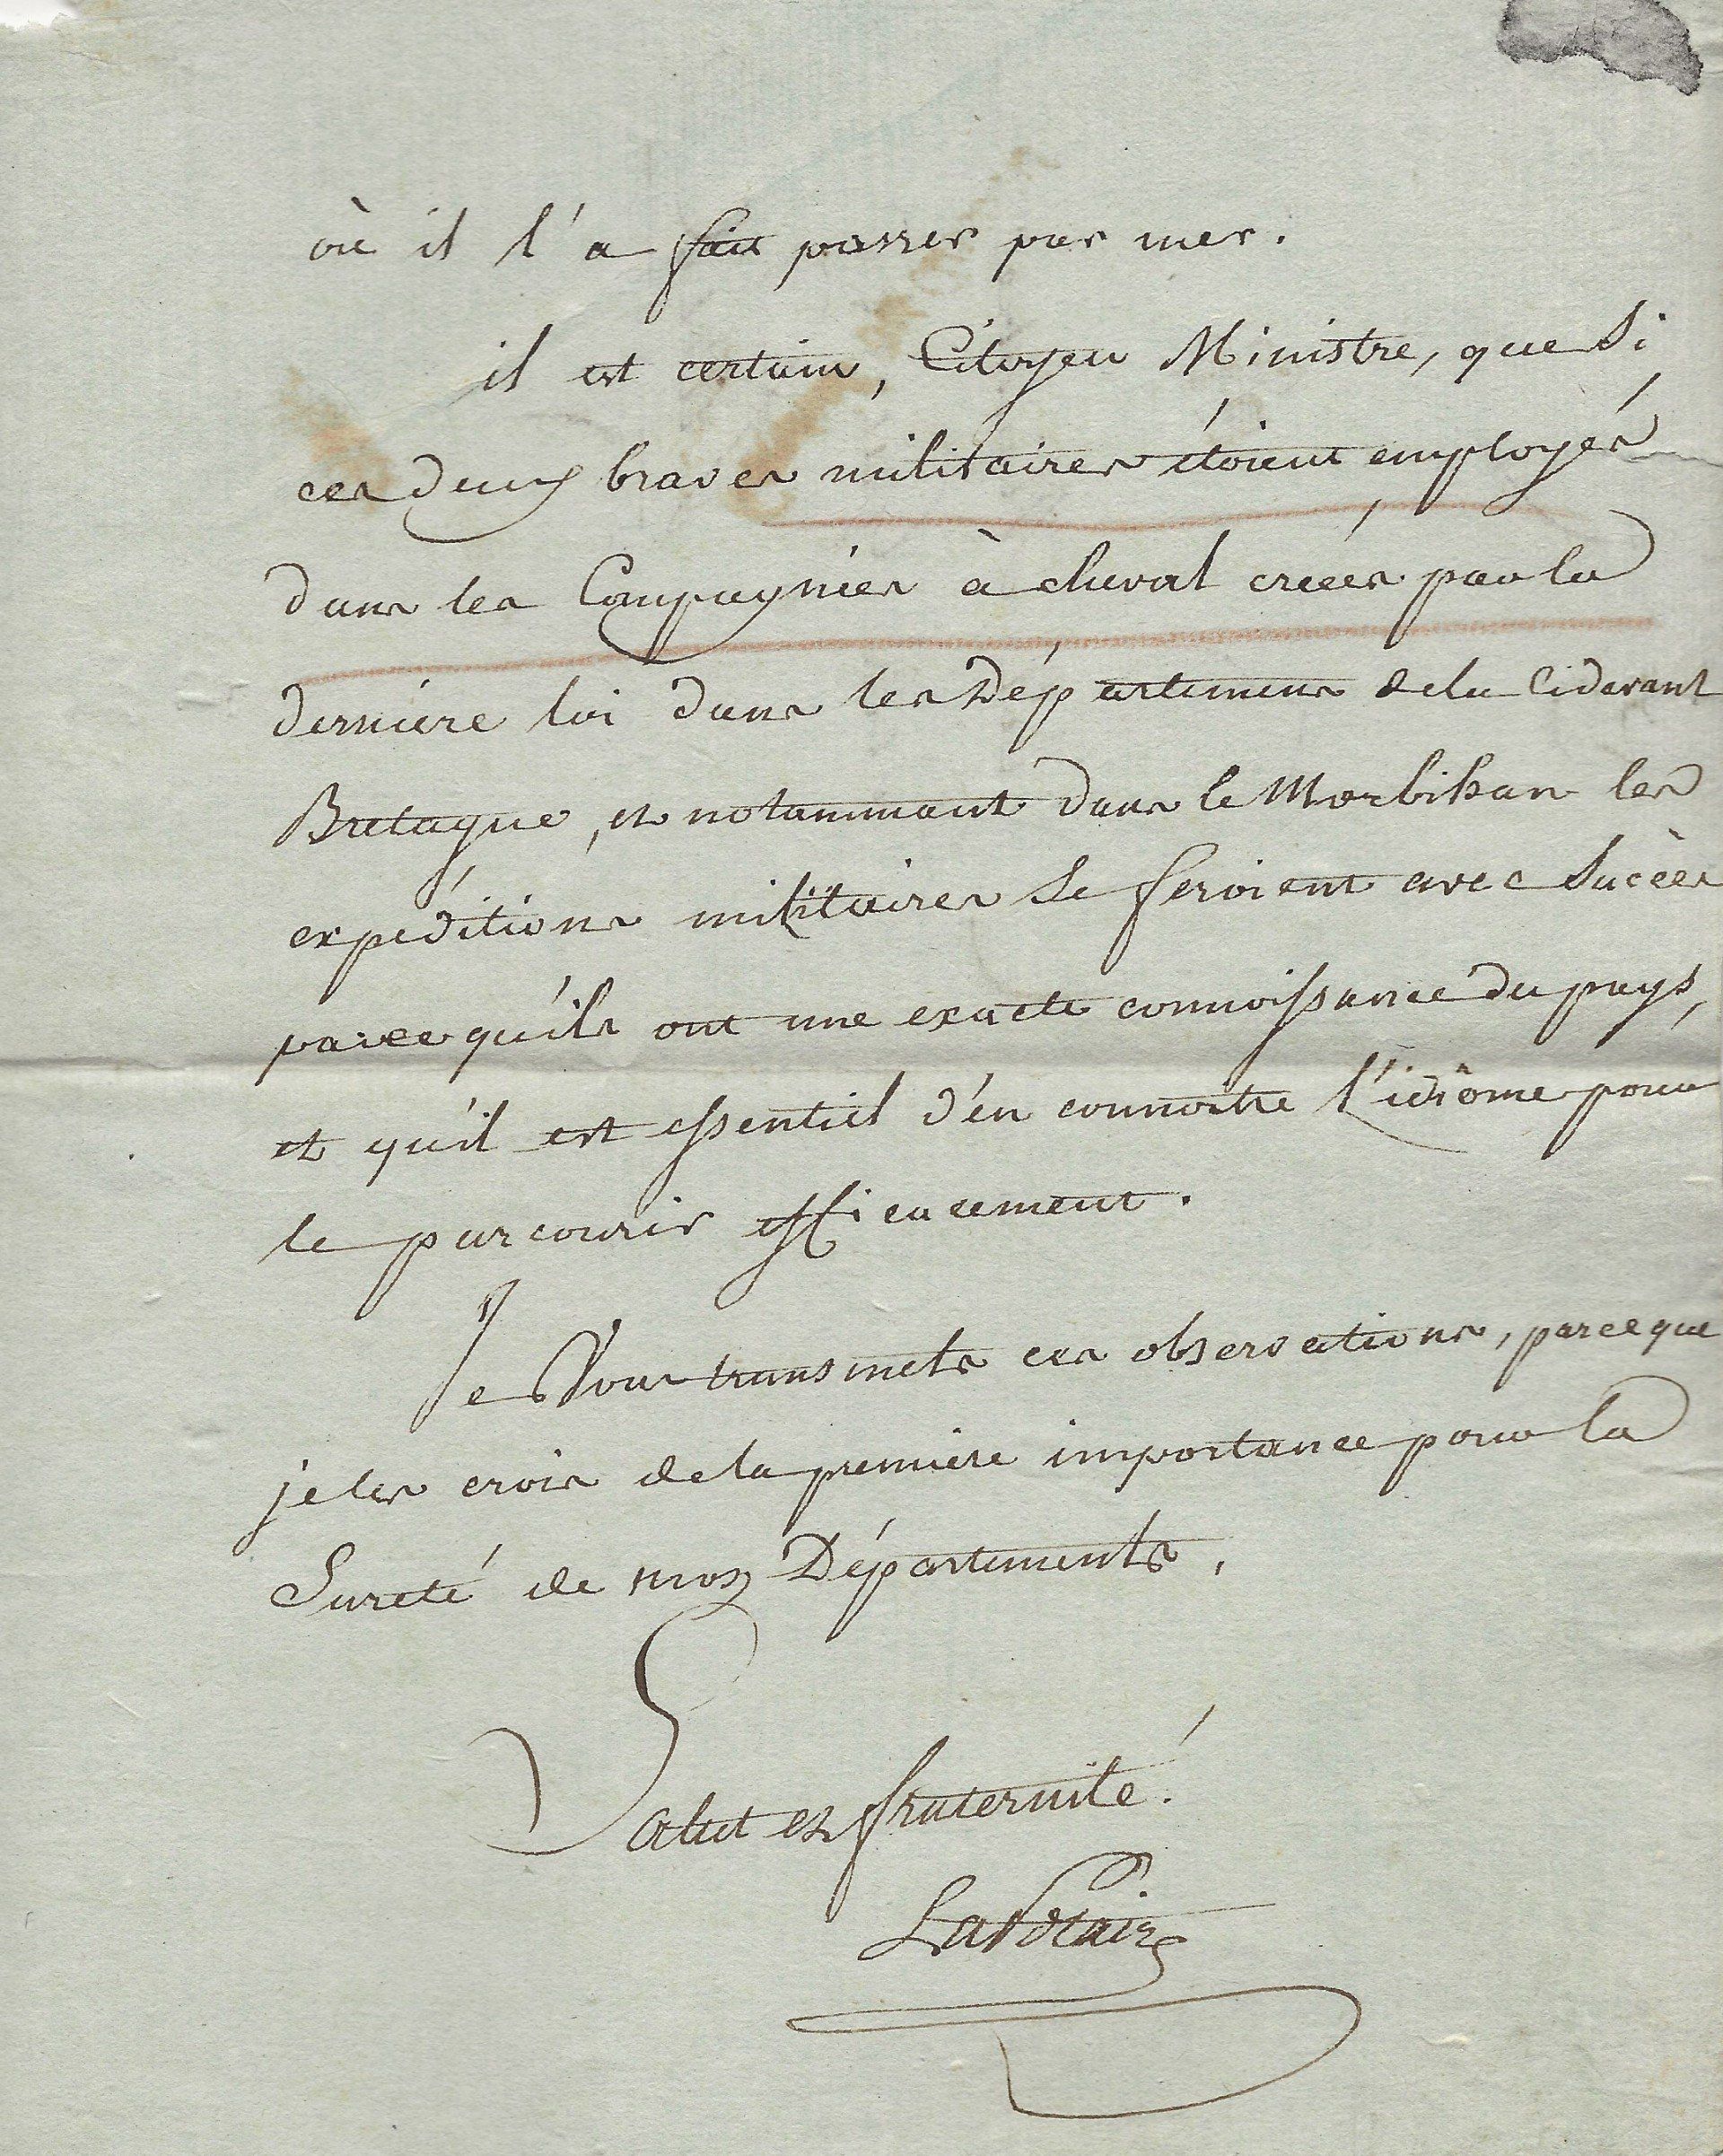 où il l'a fait passer par mer.
il est certain, Citoyen Ministre, que Si
ces deux braves militaires étoient employés
dans les Compagnies à cheval créées par la
dernière loi dans les Départemens de la Cidevant
Bretagne, et notammant dans le Morbihan les
expéditions militaires Se feroient avec Succès
parce qu'ils ont une exacte connoissance du pays,
et qu'il est essentiel d'en connoitre l'idiôme pour
le parcourir efficacement.
Je Vous transmets ces observations, parce que
je les crois de la première importance pour la
Sureté de nos Départements.
Salut et fraternité.